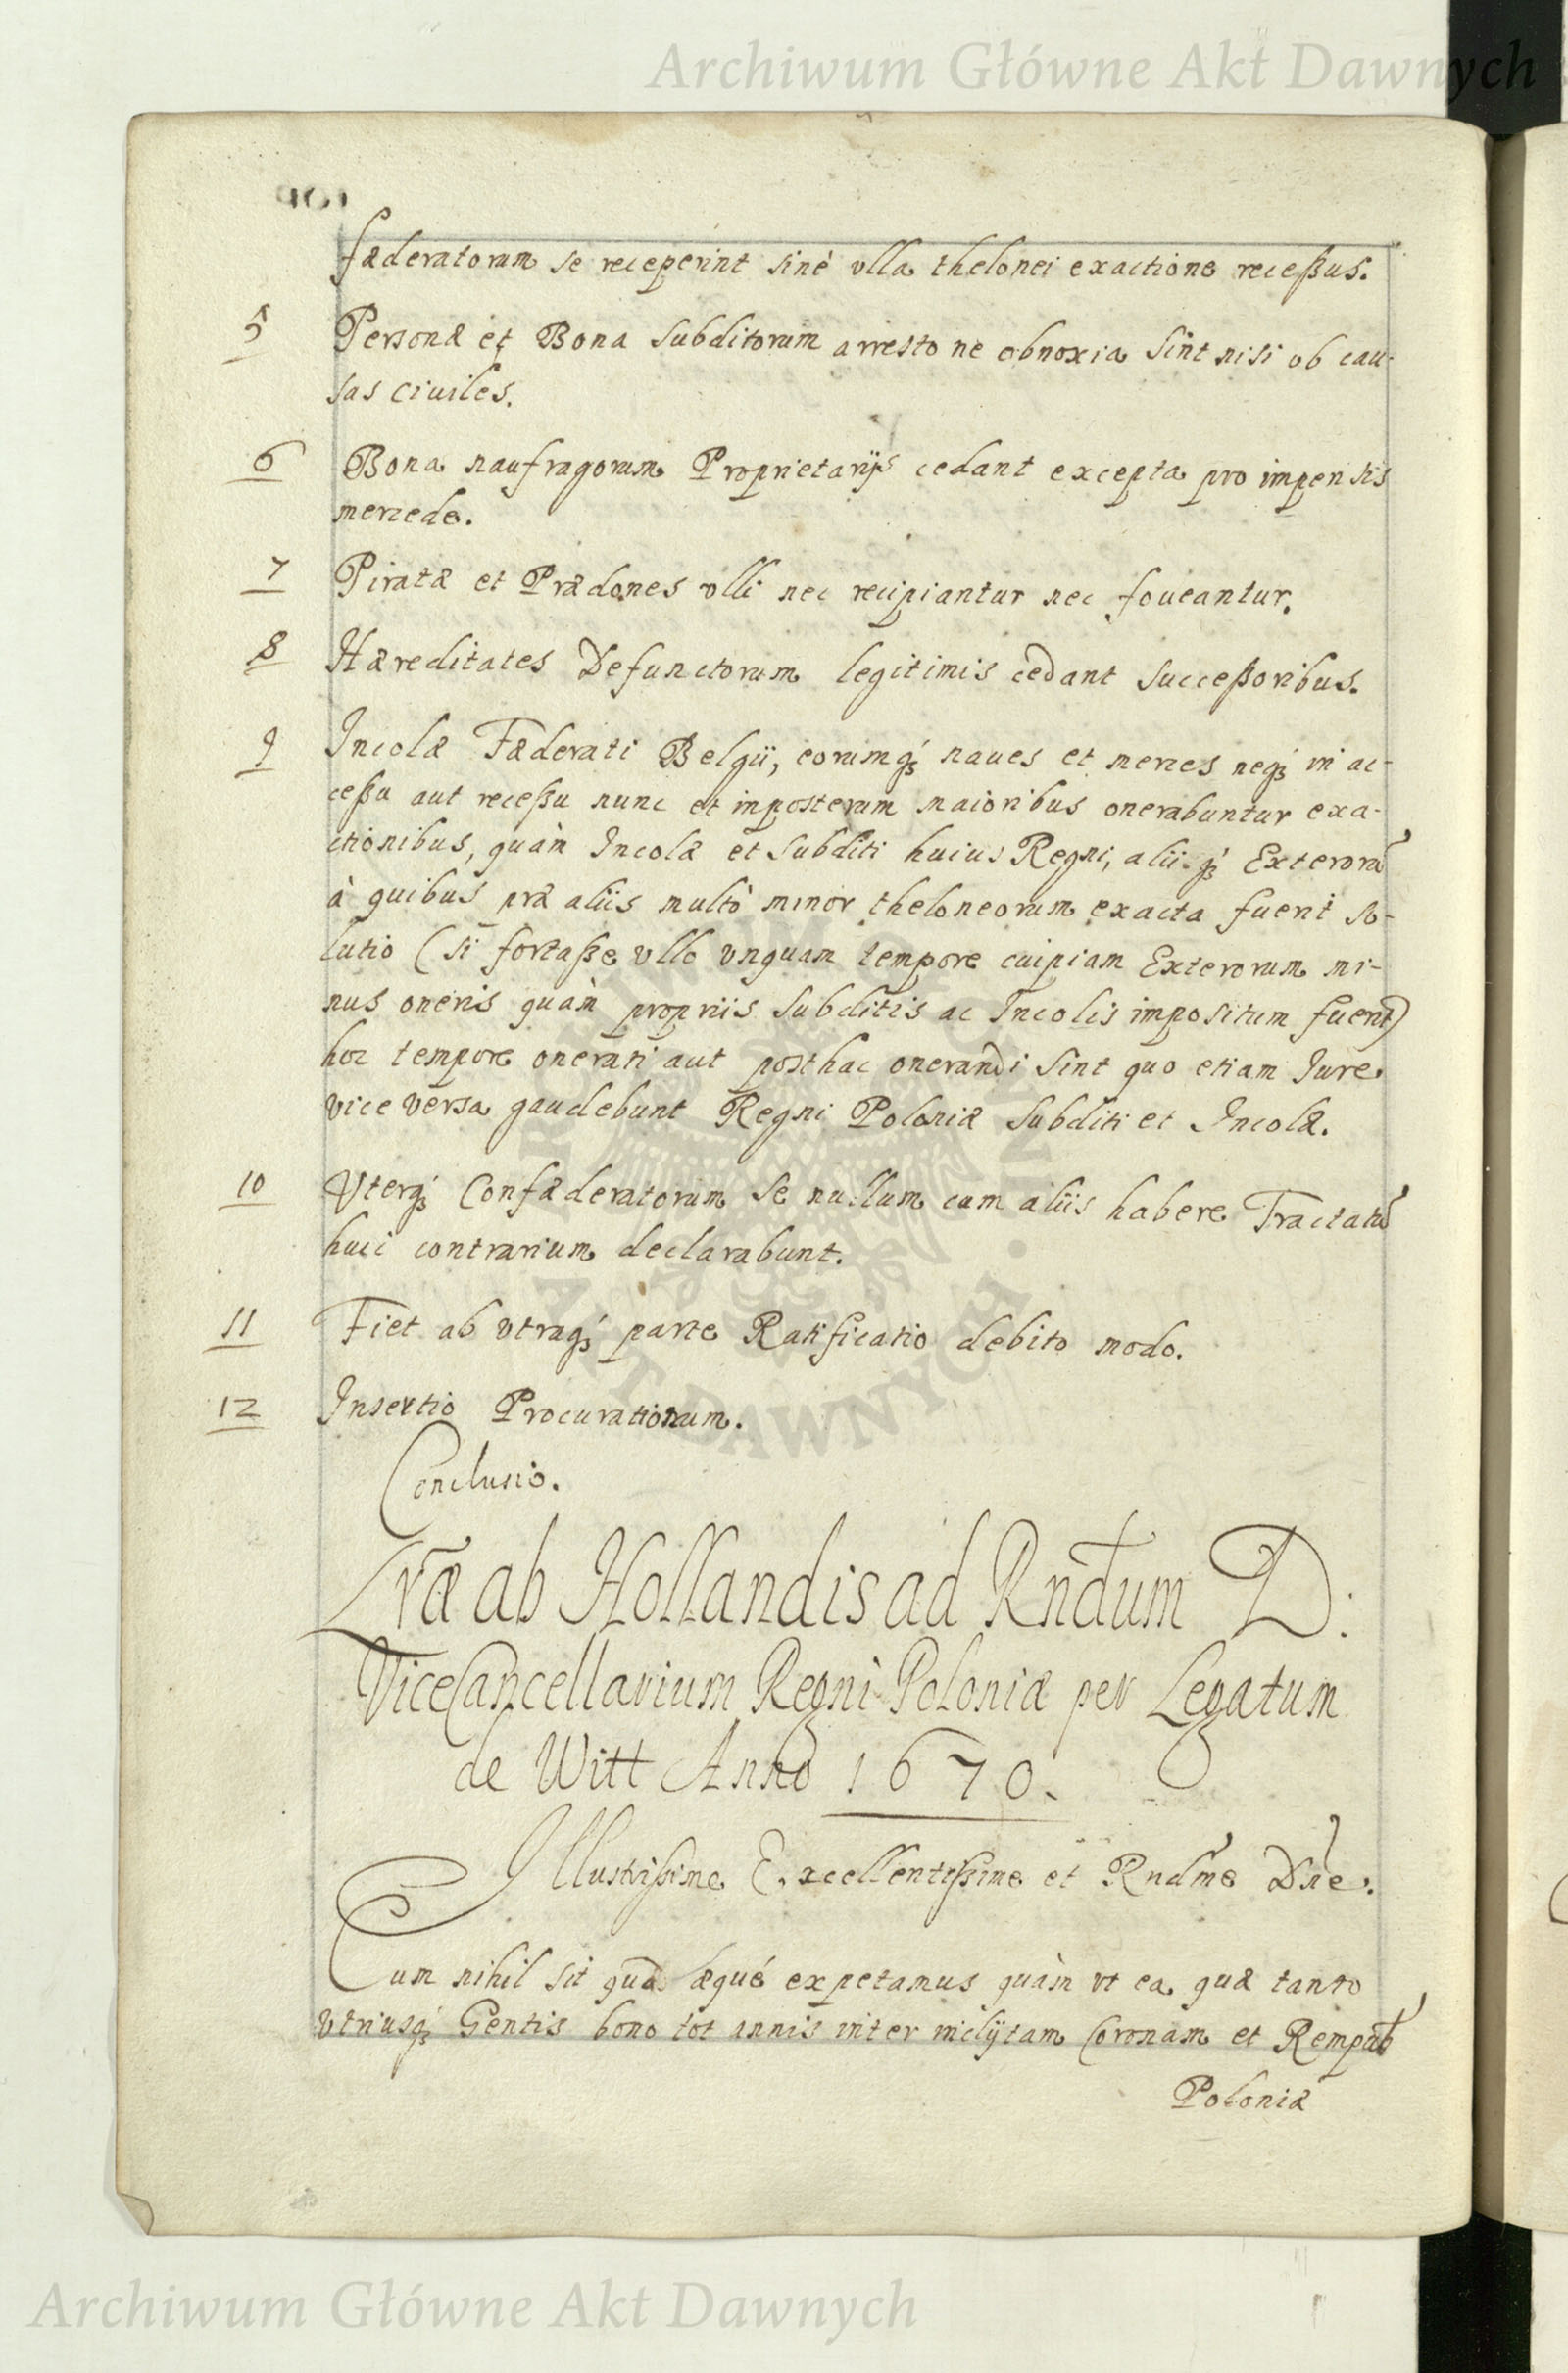 Archiwum Główne Akt Dawnych
fæderatorum se receperint sinè vlla thelonei exactione receßus.
5 Personæ et Bona Subditorum arresto ne obnoxia sint nisi ob cau-
sas ciuiles.
6 Bona naufragorum Proprietarijs cedant excepta pro impensis
mercede.
7 Piratæ et Prædones vlli nec recipiantur nec foueantur.
8 Hæreditates Defunctorum legitimis cedant Succeßoribus.
9 Incolæ Fæderati Belgii, eorumq́ naues et merces neq́ in ac-
ceßu aut receßu nunc et imposterum maioribus onerabuntur exa-
ctionibus, quàm Incolæ et Subditi huius Regni, aliiq́ Exterorū
à quibus præ aliis multò minor theloneorum exacta fuerit so-
lutio (si fortaße vllo vnquam tempore cuipiam Exterorum mi-
nus oneris quàm propriis Subditis ac Incolis impositum fuerit)
hoc tempore onerati aut posthac onerandi sint quo etiam Jure
vice versa gaudebunt Regni Poloniæ Subditi et Incolæ.
10 Vterq́ Confæderatorum se nullum cum aliis habere Tractatū
huic contrarium declarabunt.
11 Fiet ab vtraq́ parte Ratificatio debito modo.
12 Insertio Procurationum.
Conclusio.
Lræ ab Hollandis ad Rndum D:
ViceCancellarium Regni Poloniæ per Legatum
de Witt Anno 1670.
Illustrißime Excellentißime et Rndme Dne.
Cum nihil sit quod æquè expetamus quàm vt ea quæ tanto
vtriusq́ Gentis bono tot annis inter inclytam Coronam et Rempub
Poloniæ
Archiwum Główne Akt Dawnych